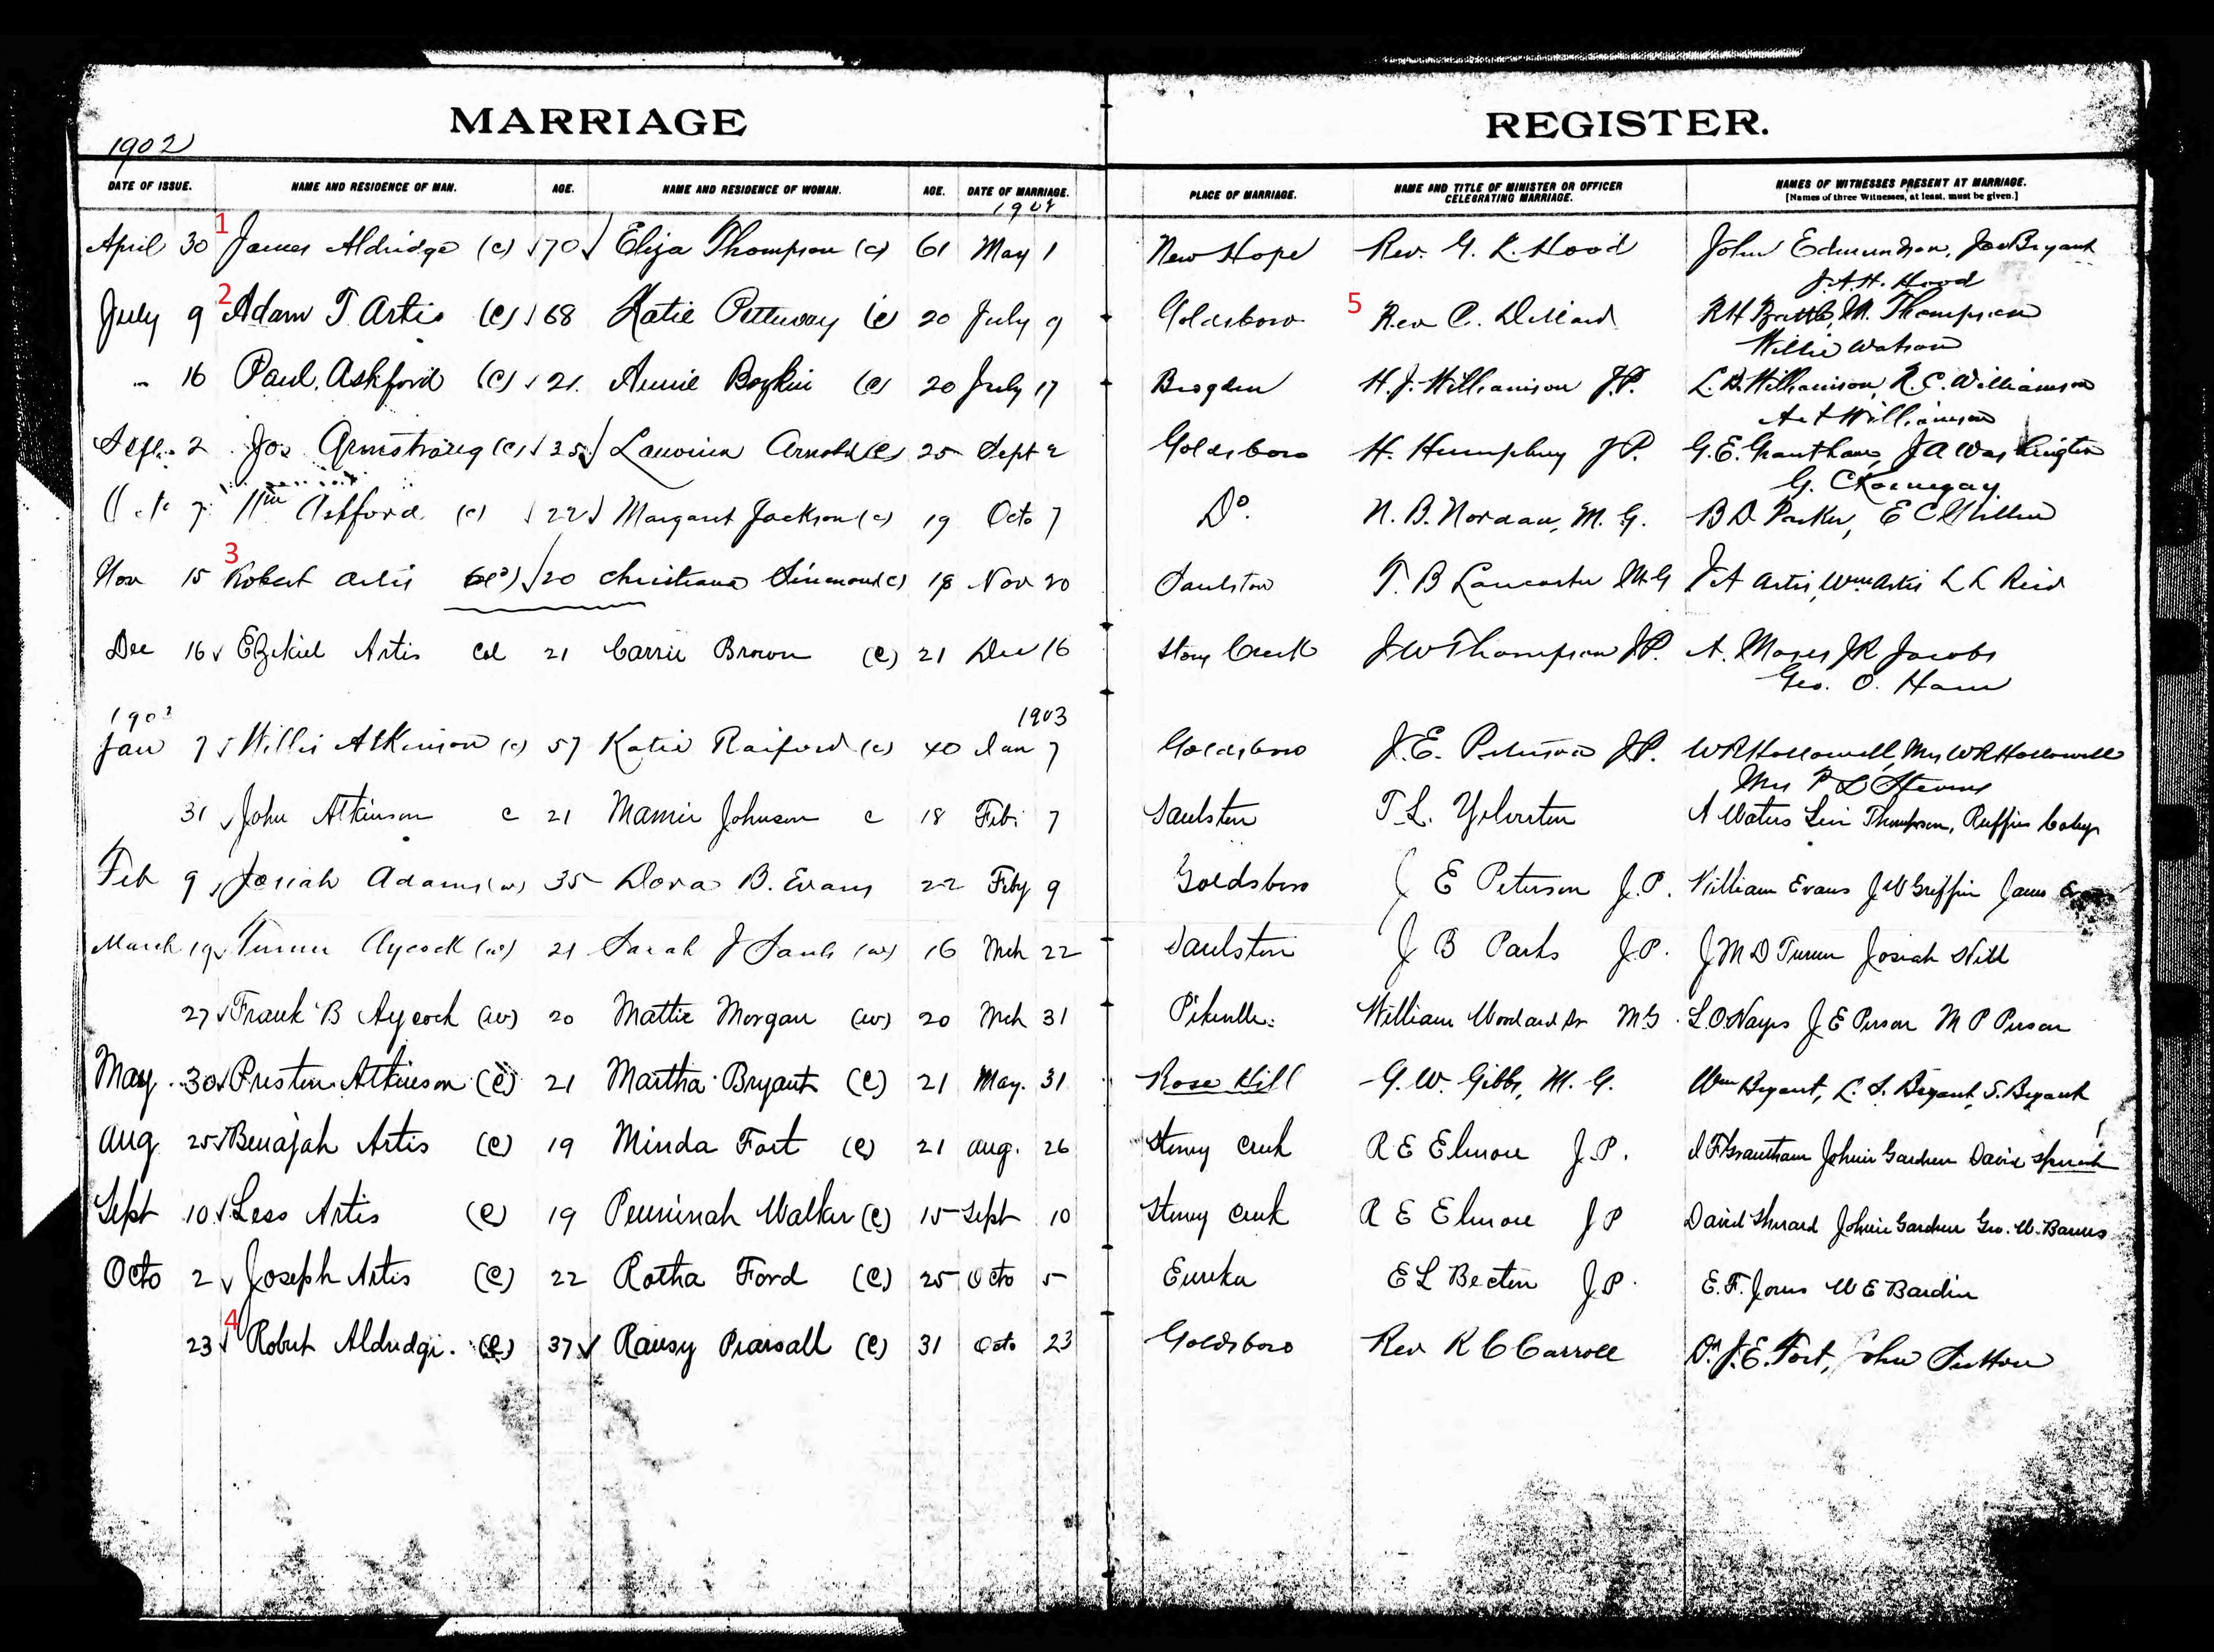 MARRIAGE REGISTER.
1902
DATE OF ISSUE. NAME AND RESIDENCE OF MAN. AGE. NAME AND RESIDENCE OF WOMAN. AGE. DATE OF MARRIAGE. PLACE OF MARRIAGE. NAME AND TITLE OF MINISTER OR OFFICER CELEBRATING MARRIAGE. NAMES OF WITNESSES PRESENT AT MARRIAGE.
[Names of three Witnesses, at least, must be given.]
1902
April 30 1 James Aldridge (c) 70 Eliza Thompson (c) 61 May 1 New Hope Rev. G. K. Hood John Edmundson, Joe Bryant
J.A.H. Hood
July 9 2 Adam T Artis (c) 68 Katie Petteway (c) 20 July 9 Goldsboro 5 Rev C. Dillard R H Battle, M. Thompson
Willie Watson
" 16 Paul Ashford (c) 21 Annie Boykin (c) 20 July 17 Brogden H. J. Williamson J.P. L. D. Williamson, R. C. Williamson
A & Williamson
Sept. 2 Jos Armstrong (c) 35 Lauvinia Arnold (c) 25 Sept 2 Goldsboro H. Humphrey J P. G. E. Grantham, J A Washington
G. C Kornegay
Octo 7 Wm Ashford (c) 22 Margaret Jackson (c) 19 Octo 7 Do. N. B. Nordan, M. G. B D Parker, E C
Nov 15 3 Robert Artis (c) 20 Christiana Simmons (c) 18 Nov 20 Saulston T. B Lancaster M.G J A Artis, Wm Artis L L Reid
Dec 16 Ezekiel Artis Col 21 Carrie Brown (c) 21 Dec 16 Stony Creek J W Thompson J.P. A. Moses J R Jacobs
Geo. O. Ham
1903 1903
Jan 7 Willis Atkinson (c) 57 Katie Raiford (c) 40 Jan 7 Goldsboro J. E. Peterson J.P. W R Hollowell, Mrs W R Hollowell
Mrs P L Stevens
31 John Atkinson c 21 Mamie Johnson c 18 Feb. 7 Saulston T. L. Yelverton A Waters Levi Thompson, Ruffin Coley
Feb 9 Josiah Adams (w) 35 Dora B. Evans 22 Feby 9 Goldsboro J E Peterson J.P. William Evans J W Griffin James
March 19 Turner Aycock (w) 21 Sarah J Sauls (w) 16 Mch 22 Saulston J B Parks J.P. J M D Turner Josiah Will
27 Frank B Aycock (w) 20 Mattie Morgan (w) 20 Mch 31 Pikeville William Woodard Sr M G. L. O. Hayes J E Person M P Person
May 30 Preston Atkinson (c) 21 Martha Bryant (c) 21 May. 31 Rose Hill G. W. Gibbs, M. G. Wm Bryant, L. S. Bryant, S. Bryant
Aug 25 Benajah Artis (c) 19 Minda Fort (c) 21 Aug. 26 Stoney Creek R E Elmore J.P. J F Grantham Johnie Gardner David
Sept 10 Less Artis (c) 19 Penninah Walker (c) 15 Sept 10 Stoney Creek R E Elmore J P David Sherard Johnie Gardner Geo. W. Barnes
Octo 2 Joseph Artis (c) 22 Rotha Ford (c) 25 Octo 5 Eureka E L Becton J P. E. F. Jones W E Bardin
23 4 Robert Aldridge. (c) 37 Ransy Pearsall (c) 31 Octo 23 Goldsboro Rev R C Carroll Dr J. E. Fort, John Sutton